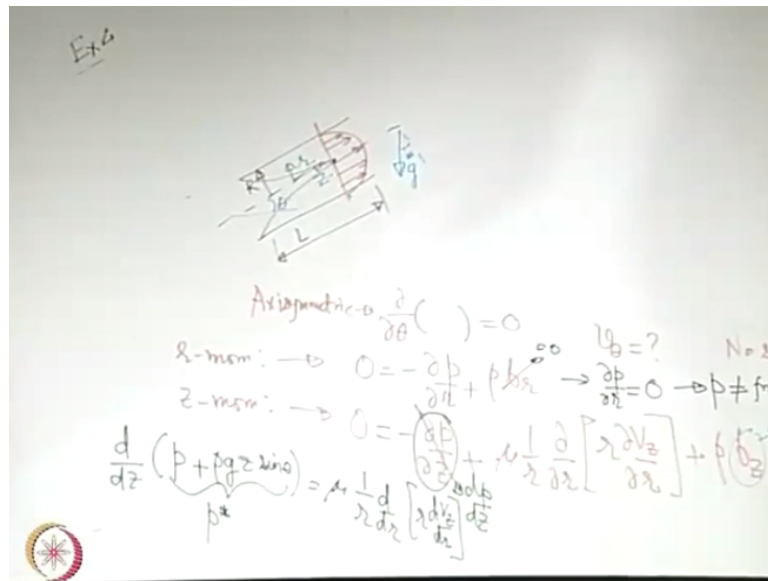 Ex 4
R
r
z
θ
L
g
Axisymmetric → ∂/∂θ ( ) = 0
r-mom: → 0 = -∂p/∂r + ρbr → ∂p/∂r = 0 → p ≠ fn
Vθ = ?
No
z-mom: → 0 = -∂p/∂z + μ 1/r ∂/∂r [r ∂Vz/∂r] + ρ bz
dp/dz
d/dz (p + ρgz sinθ) = μ 1/r d/dr [r dVz/dr]
p*